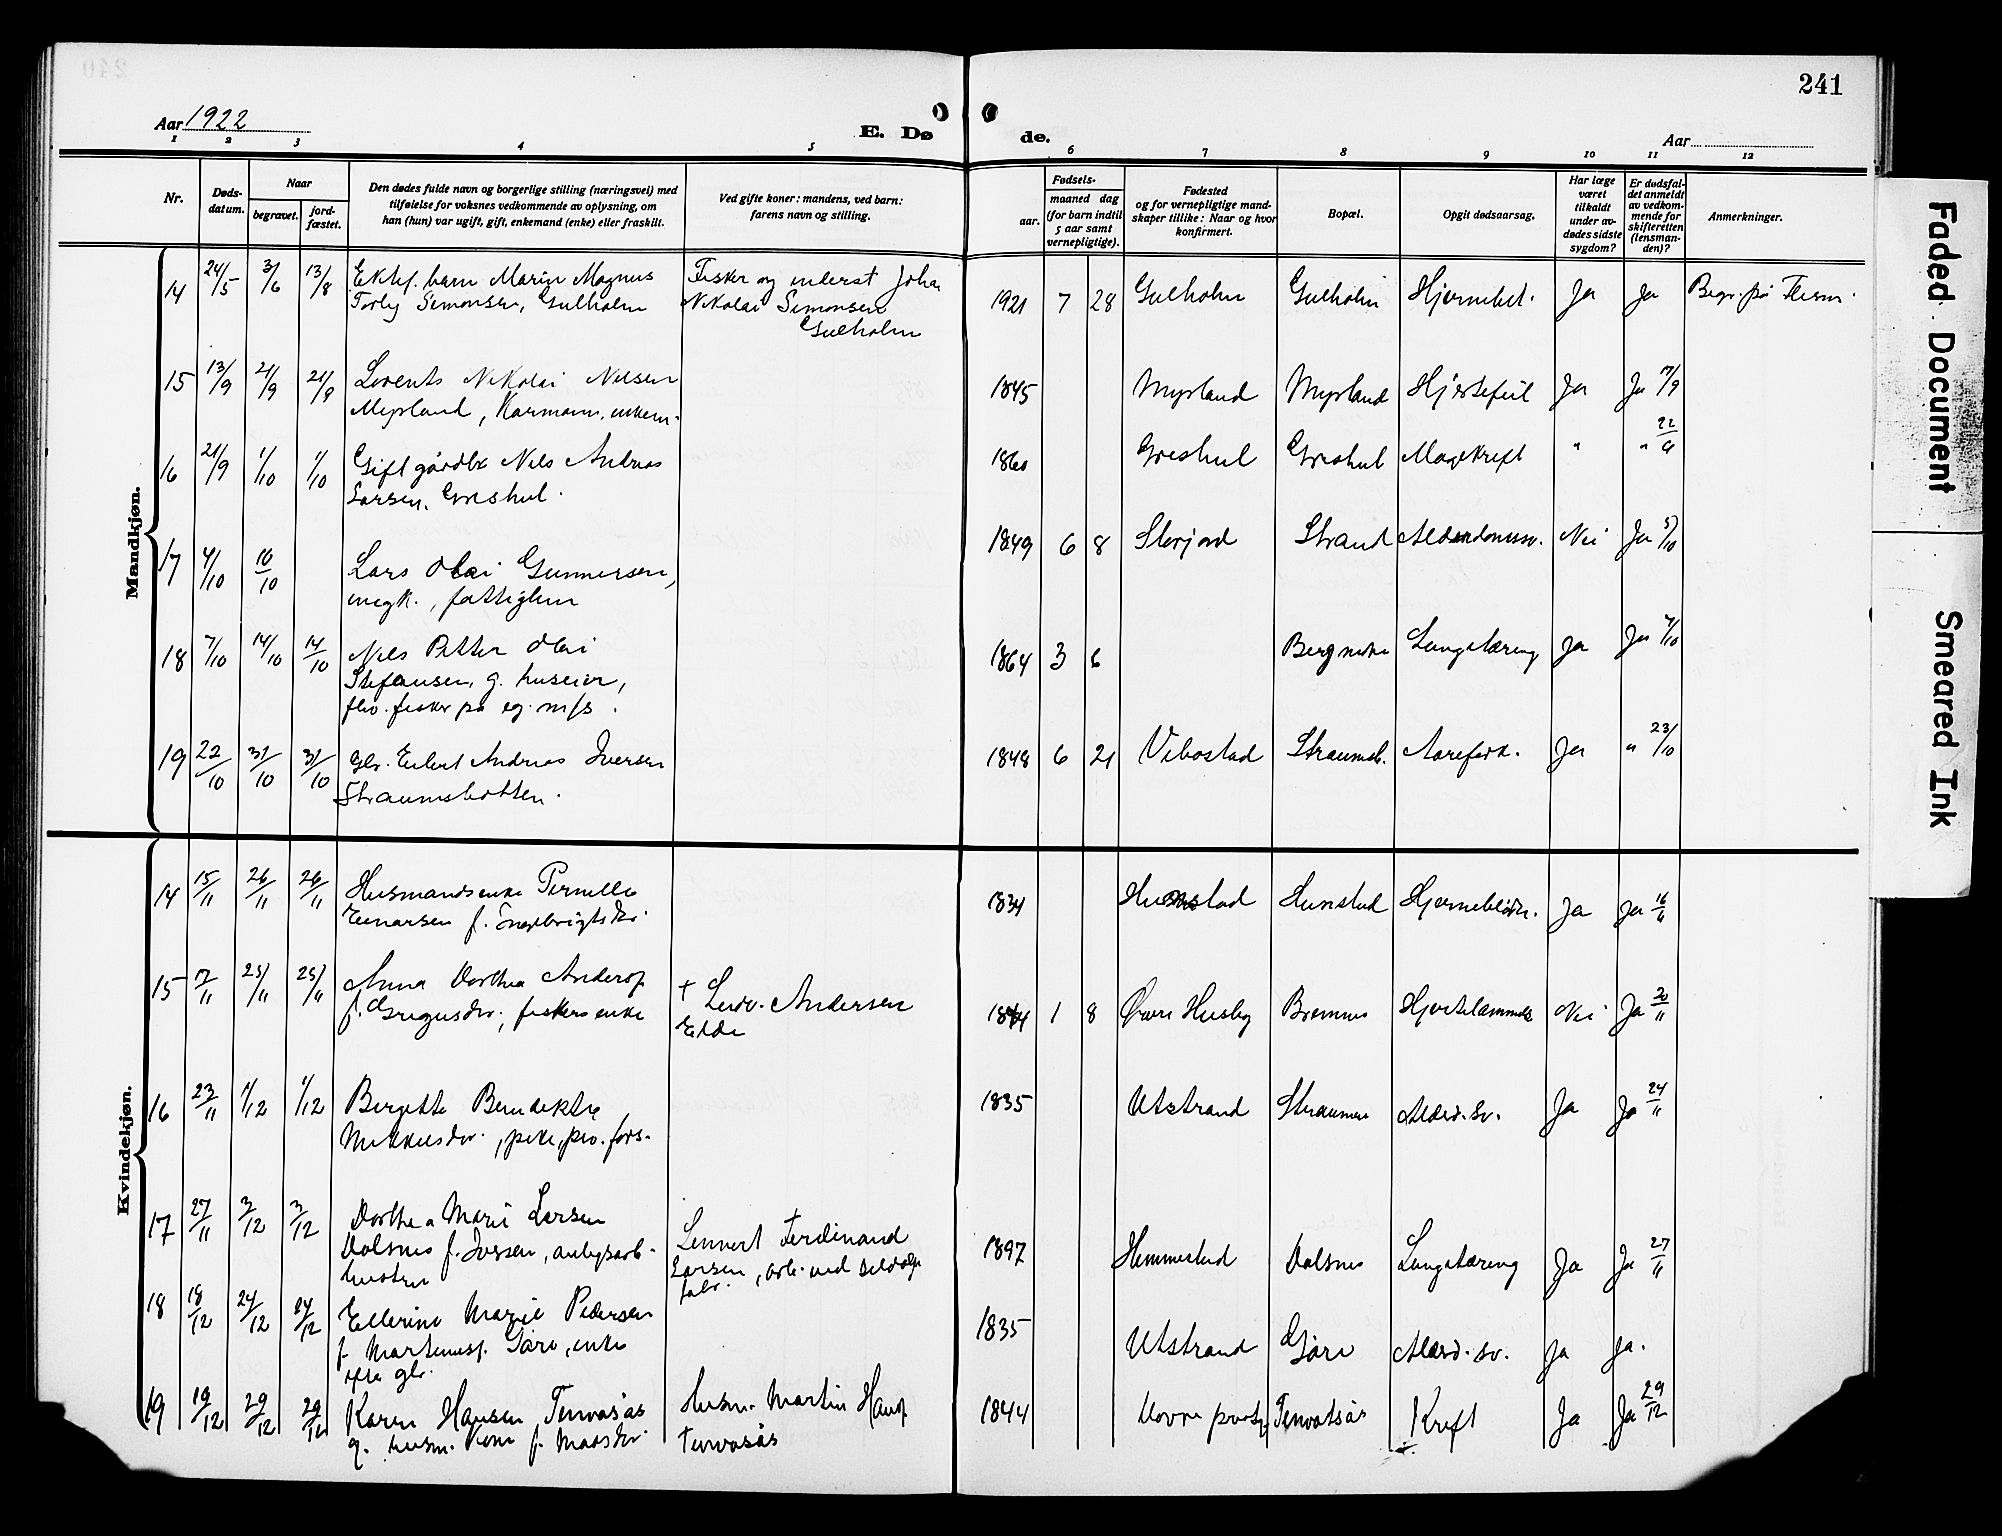 241
Aar 1922
E. Dø de.
Aar
1 2 3 4 5 6 7 8 9 10 11 12
Nr.
Døds-
datum.
Naar
begravet.
jord-
fæstet.
Den dødes fulde navn og borgerlige stilling (næringsvei) med
tilføielse for voksnes vedkommende av oplysning, om
han (hun) var ugift, gift, enkemand (enke) eller fraskilt.
Ved gifte koner: mandens, ved barn:
farens navn og stilling.
Fødsels-
aar.
maaned dag
(for barn indtil
5 aar samt
vernepligtige).
Fødested
og for vernepligtige mand-
skaper tillike: Naar og hvor
konfirmert.
Bopæl.
Opgit dødsaarsag.
Har læge
været
tilkaldt
under av-
dødes sidste
sygdom?
Er dødsfal-
det anmeldt
av vedkom-
mende for
skifteretten
(lensman-
den)?
Anmerkninger.
Mandkjøn.
14 24/5 3/6 13/8 Ektef. barn Marin Magnus
Torly Simonsen, Gulholm
Fisker og inderst Johan
Nikolai Simonsen
Gulholm
1921 7 28 Gulholm Gulholm Hjernebet. Ja Ja
15 13/9 21/9 21/9 Lorents Nikolai Nilsen
Myrland, Kaarmann, enkem.
1845 Myrland Myrland Hjertefeil Ja Ja 17/9
16 21/9 1/10 1/10 Gift gårdbr Nils Andreas
Larsen, Greshul.
1860 Greshul Greshul Mavekreft " " 22/9
17 4/10 10/10 Lars Olai Gunnarsen,
ungk., fattiglem
1849 6 8 Storjord Strand Alderdomssv. Nei Ja 5/10
18 7/10 14/10 14/10 Nils Petter Olai
Stefansen, g. huseier,
flv. fisker på eg. m/s.
1864 3 6 Lungetæring Ja Ja 7/10
19 22/10 31/10 31/10 gbr. Eilert Andreas Iversen
Straumsbotten.
1848 6 21 Vibostad Straumsb. Aarefork. Ja " 23/10
Kvindekjøn.
14 15/11 26/11 26/11 Husmandsenke Pernille
Einarsen f. Ingebrigtsdtr.
1834 Hunstad Hunstad Hjerneblødn. Ja Ja 16/11
15 17/11 25/11 25/11 Anna Dorthea Anders.
f. Gregusdtr., fiskers enke
+ Ludv. Andersen
Elde
1 8 Øvre Husby Bremnes Hjertelammelse Nei Ja 20/11
16 23/11 1/12 1/12 Bergitte Bendikte
Mikkelsdtr., pike, priv. fors.
1835 Utstrand Straumen Alderd.sv. Ja Ja 24/11
17 27/11 3/12 3/12 Dorthea Marie Larsen
Dalsnes f. Jossen, anlegsarb.
hustru
Lennert Ferdinand
Larsen, arb. ved sildolje
fabr.
1897 Hemmestad Dalsnes Lungetæring Ja Ja 27/11
18 18/12 24/12 24/12 Ellerine Marie Pedersen
f. Martinusf. Gåre, enke
efter gbr.
1835 Utstrand Gåre Alderd.sv. Ja Ja.
19 19/12 29/12 29/12 Karen Hansen Tenvasås
g. husm. kone f. Maasdtr.
Husm. Martin Hans.
Tenvasås
1844 Tenvatsås Kreft Ja Ja 29/12
Faded Document
Smeared Ink